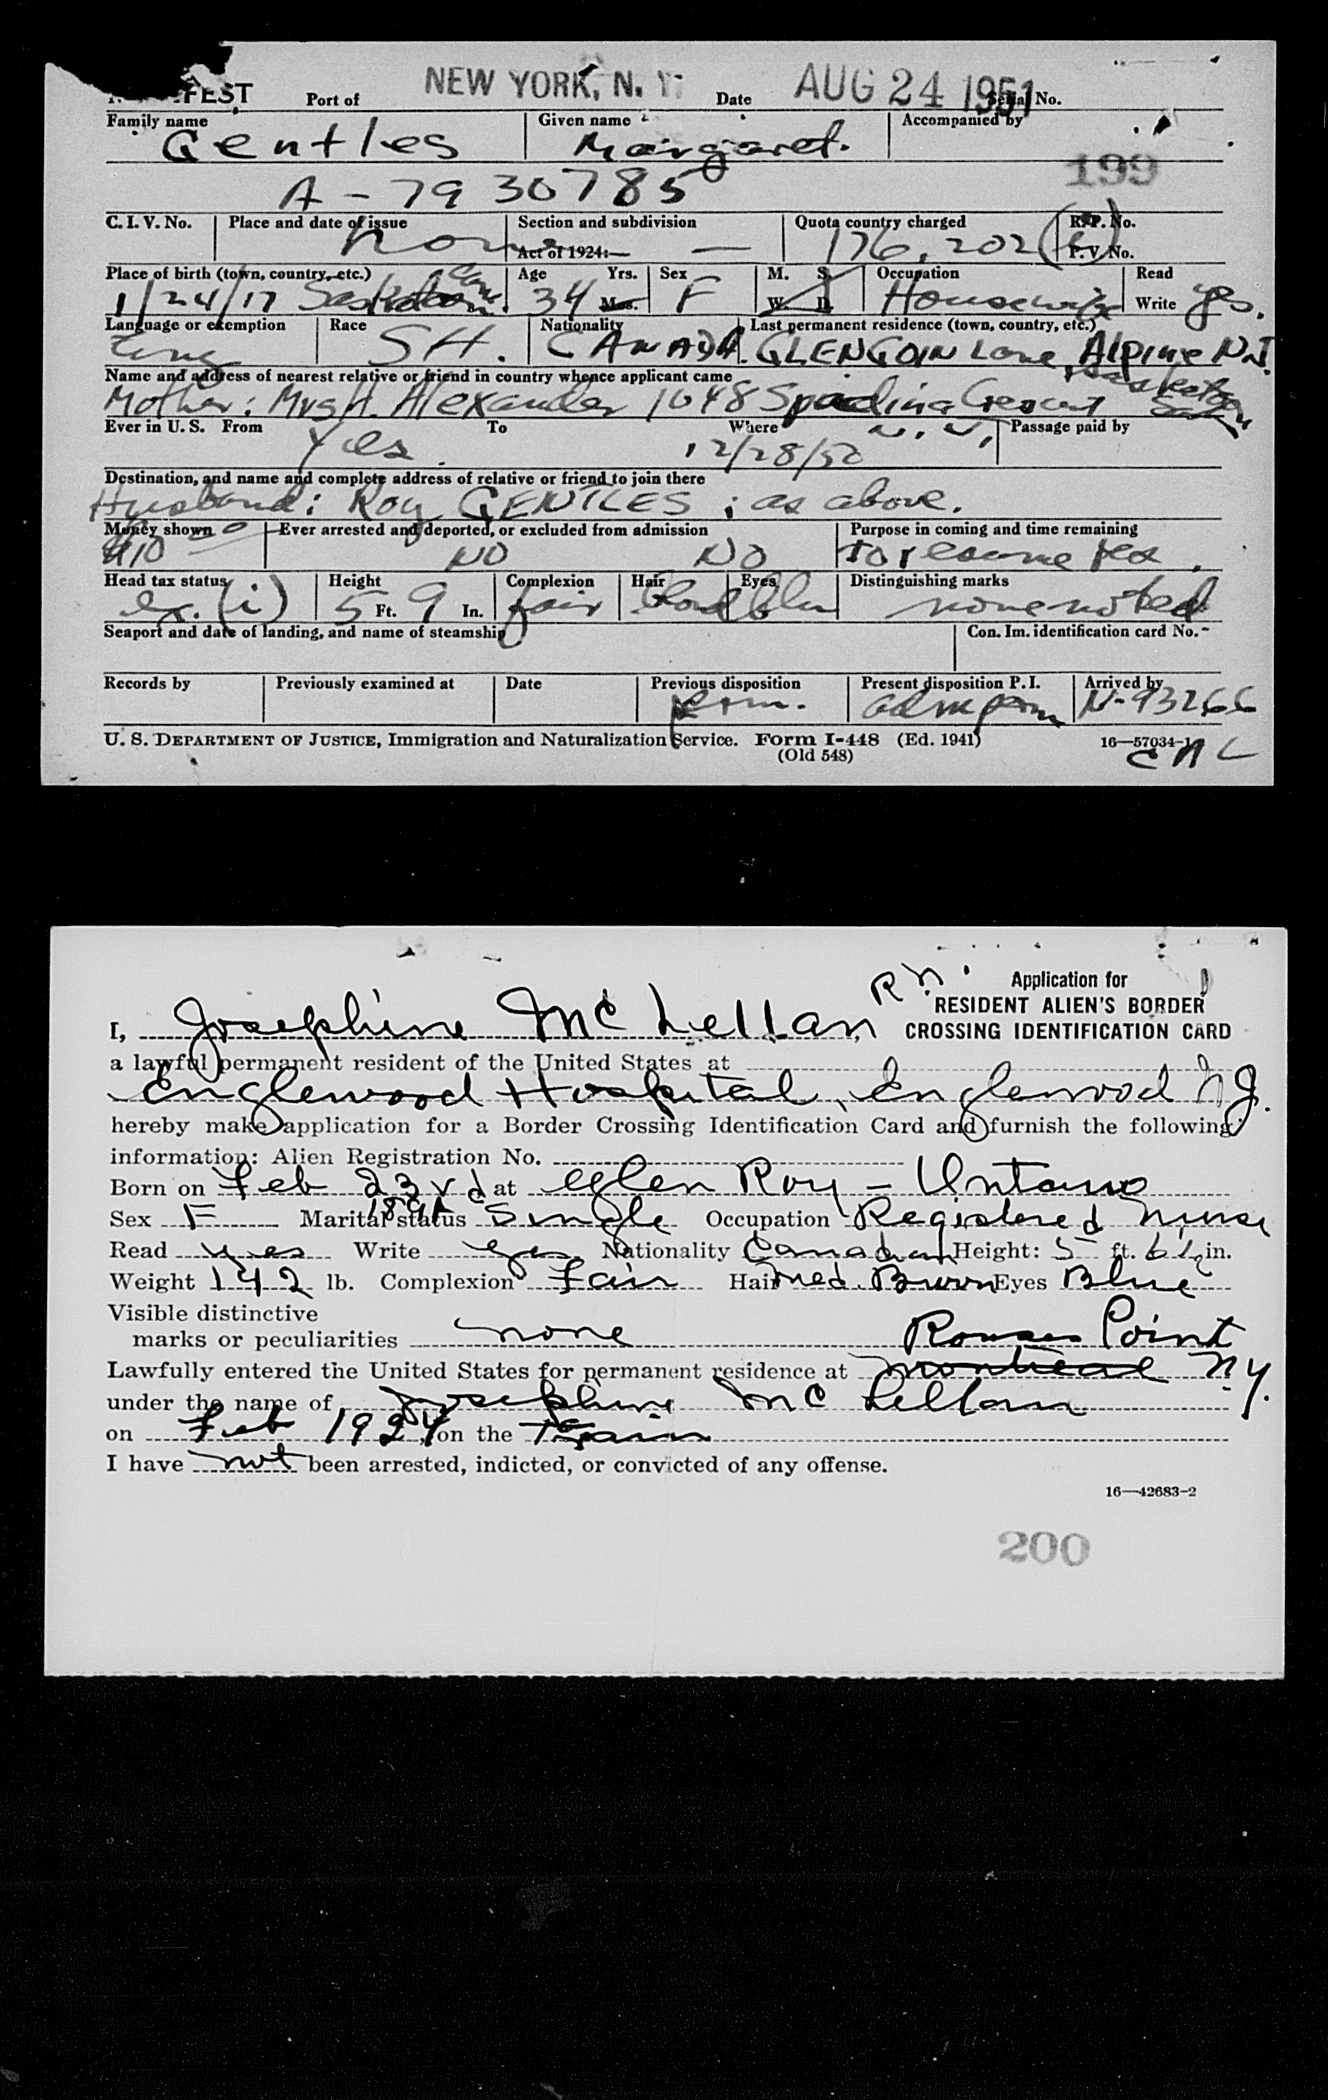 FEST Port of NEW YORK, N. Y. Date AUG 24 1951 Serial No.
Family name Given name Accompanied by
Gentles Margaret.
199
A-7930785
C. I. V. No. Place and date of issue Section and subdivision Quota country charged R. P. No.
Act of 1924:— — 176.202( ) P. V. No.
Place of birth (town, country, etc.) Age Yrs. Sex M. S. Occupation Read
1/24/17 Saskatoon Can. 34 Mos. F W. D. Housewife Write yes.
Language or exemption Race Nationality Last permanent residence (town, country, etc.)
Eng SH. CANADA. GLENGOIN Lane, Alpine N.J.
Name and address of nearest relative or friend in country whence applicant came
Mother: Mrs H. Alexander 1048 Spadina Crescent Saskatoon Sask
Ever in U. S. From To Where Passage paid by
Yes. 12/28/50 N.Y.
Destination, and name and complete address of relative or friend to join there
Husband: Roy GENTLES; as above.
Money shown Ever arrested and deported, or excluded from admission Purpose in coming and time remaining
$10 00 NO NO to resume res.
Head tax status Height Complexion Hair Eyes Distinguishing marks
ex. (i) 5 Ft. 9 In. fair blond blu none noted
Seaport and date of landing, and name of steamship Con. Im. identification card No.
Records by Previously examined at Date Previous disposition Present disposition P. I. Arrived by
adm perm N-93266
U. S. DEPARTMENT OF JUSTICE, Immigration and Naturalization Service. Form I-448 (Ed. 1941) 16—57034-1
(Old 548) CNL
RN. Application for
RESIDENT ALIEN'S BORDER
I, Josephine McLellan, CROSSING IDENTIFICATION CARD
a lawful permanent resident of the United States at
Englewood Hospital, Englewood N.J.
hereby make application for a Border Crossing Identification Card and furnish the following
information: Alien Registration No.
Born on Feb 23rd 1894 at Glen Roy – Ontario
Sex F Marital status Single Occupation Registered Nurse
Read yes Write yes Nationality Canadian Height: 5 ft. 6½ in.
Weight 142 lb. Complexion Fair Hair med. Brown Eyes Blue
Visible distinctive
marks or peculiarities none Rouses Point
Lawfully entered the United States for permanent residence at Montreal N.Y.
under the name of Josephine McLellan
on Feb 1924, on the Train
I have not been arrested, indicted, or convicted of any offense.
16—42683-2
200